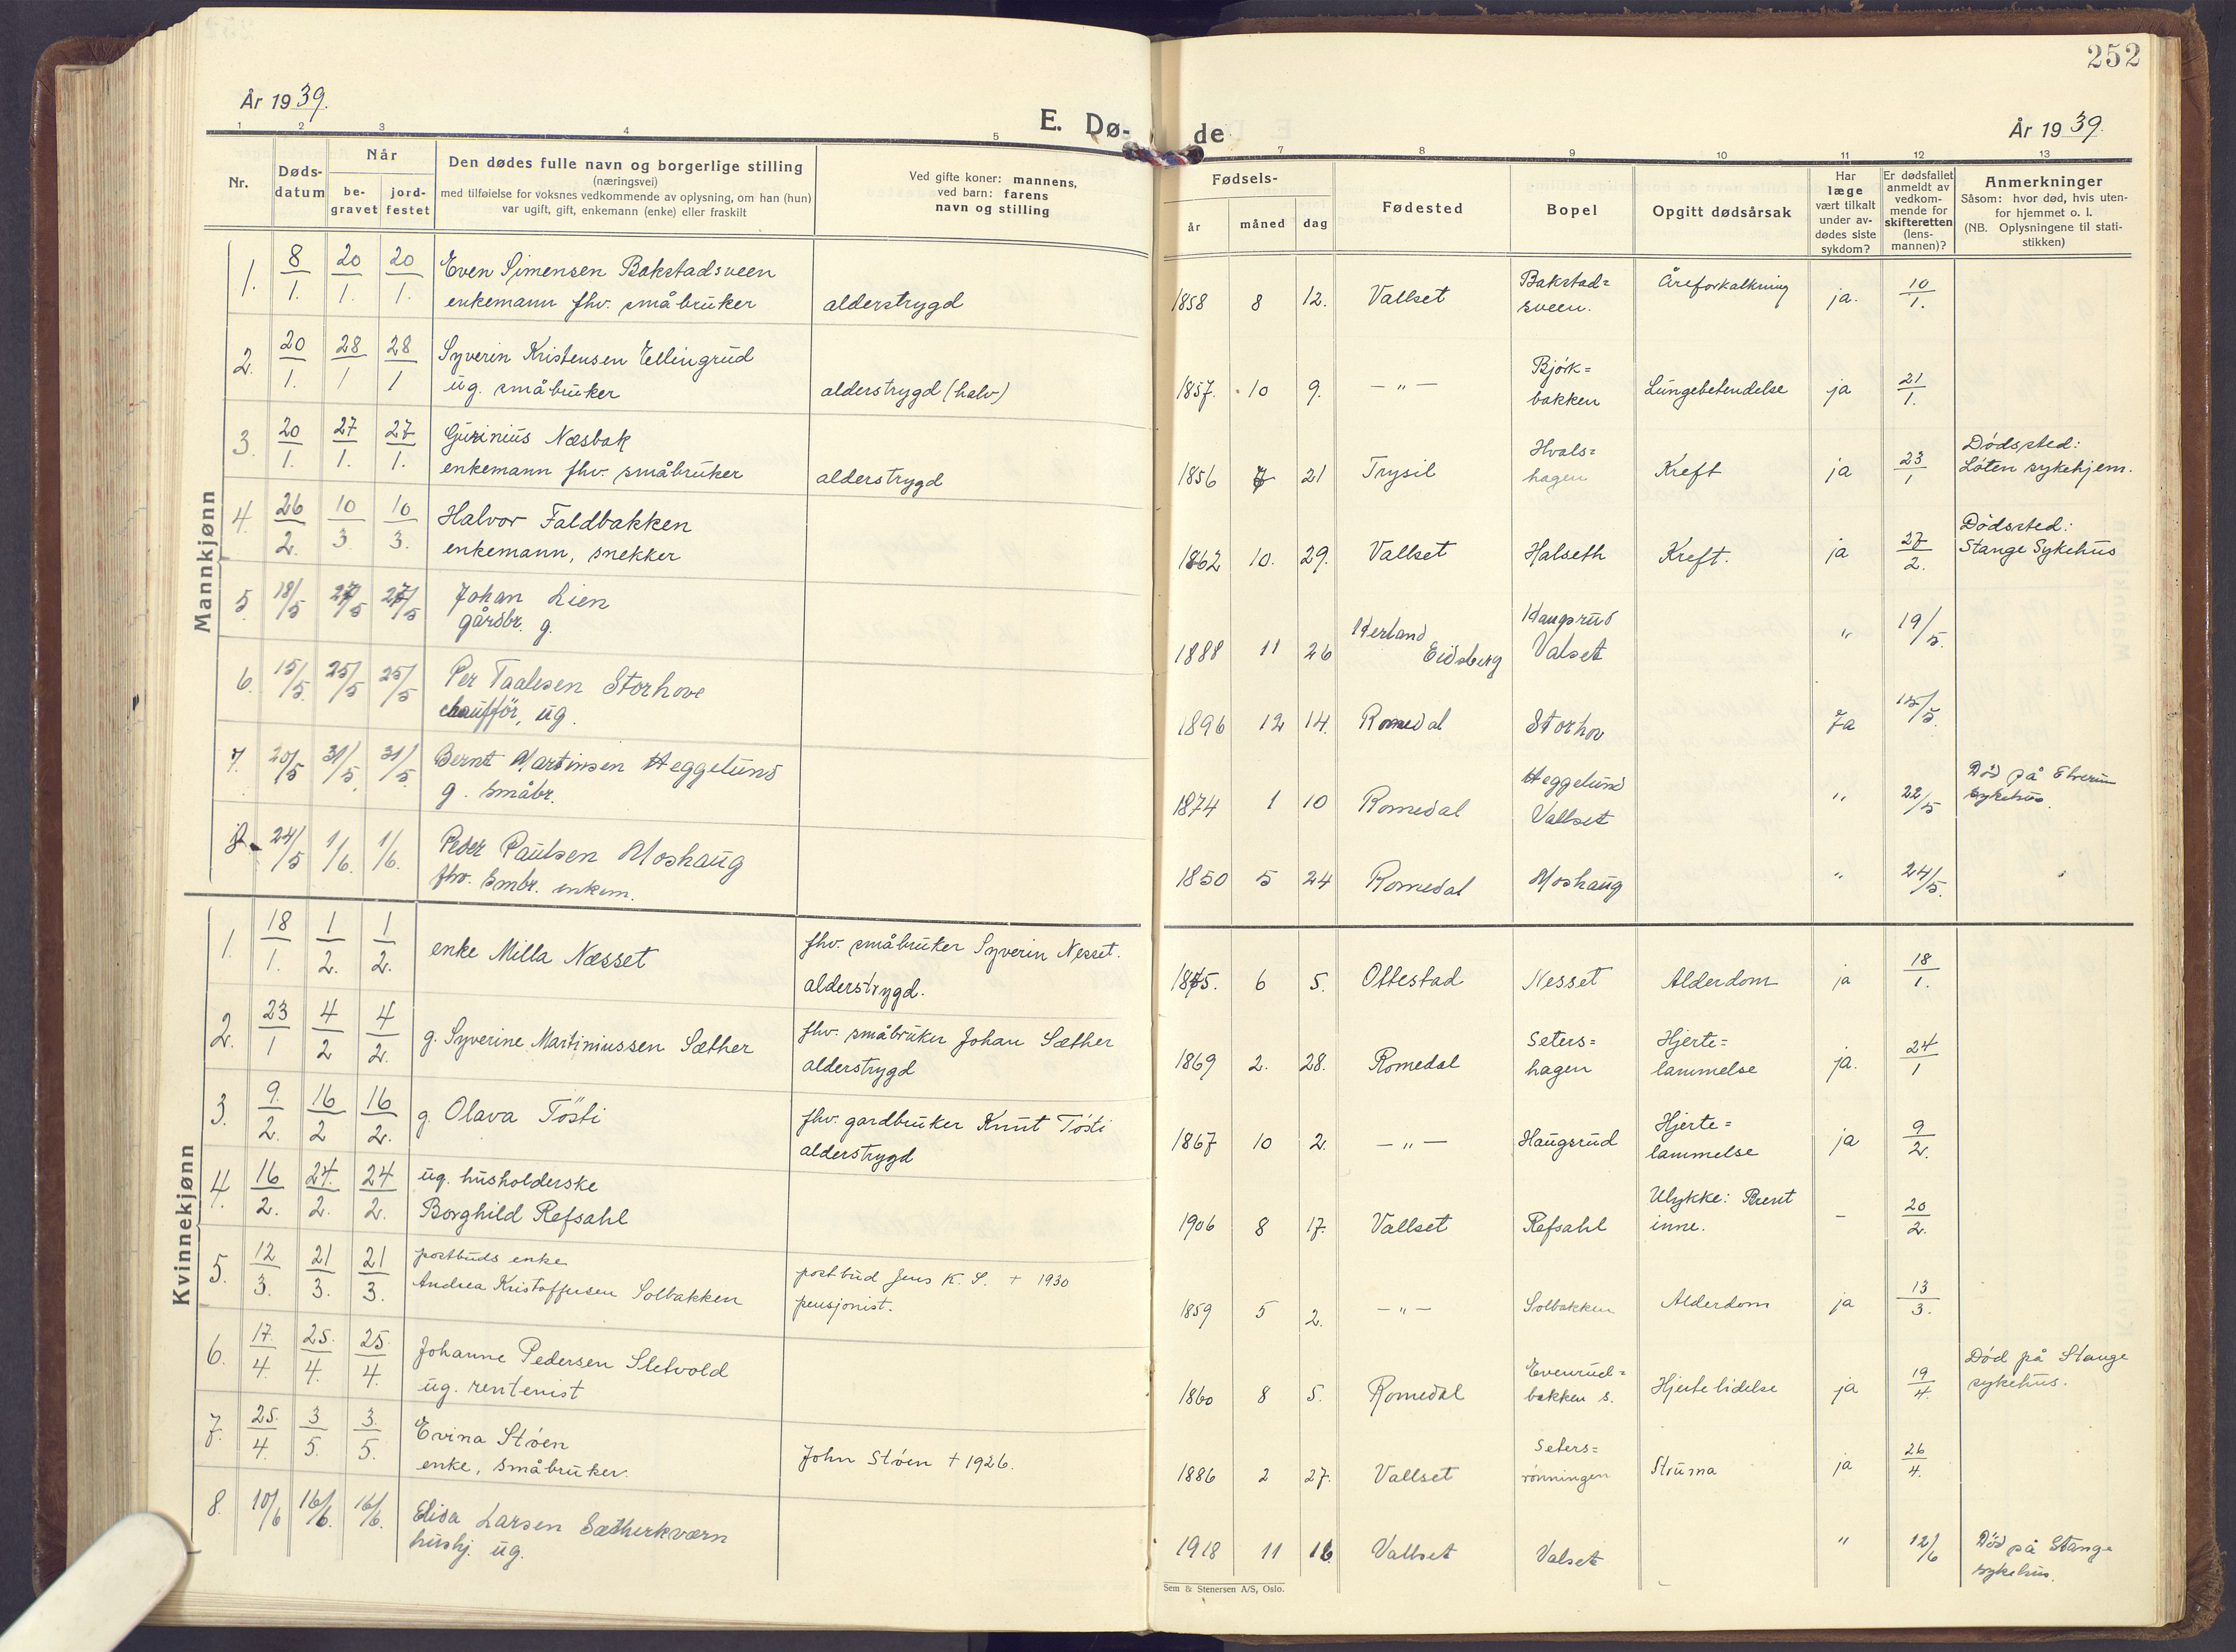 252
År 1939.
E. Dø-
de
År 1939.
1 2 3 4 5 7 8 9 10 11 12 13
Nr.
Døds-
datum
Når
be-
gravet
jord-
festet
Den dødes fulle navn og borgerlige stilling
(næringsvei)
med tilføielse for voksnes vedkommende av oplysning, om han (hun)
var ugift, gift, enkemann (enke) eller fraskilt
Ved gifte koner: mannens,
ved barn: farens
navn og stilling
Fødsels-
år måned dag
Fødested
Bopel
Opgitt dødsårsak
Har
læge
vært tilkalt
under av-
dødes siste
sykdom?
Er dødsfallet
anmeldt av
vedkom-
mende for
skifteretten
(lens-
mannen)?
Anmerkninger
Såsom: hvor død, hvis uten-
for hjemmet o. l.
(NB. Oplysningene til stati-
stikken)
Mannkjønn
1. 8/1. 20/1. 20/1. Even Simensen Bakstadsveen
enkemann fhv. småbruker alderstrygd
1858 8 12. Vallset Bakstad=
sveen. Åreforkalkning ja. 10/1.
2. 20/1. 28/1 28/1 Syverin Kristensen Ellingrud
ug. småbruker alderstrygd (halv)
1857. 10 9. — " — Bjørk=
bakken Lungebetendelse ja 21/1.
3. 20/1. 27/1. 27/1. Gurinius Næsbak
enkemann fhv. småbruker alderstrygd
1856 7 21 Trysil Hvals=
hagen Kreft ja 23/1 Dødssted:
Løten sykehjem.
4. 26/2. 10/3. 10/3. Halvor Faldbakken
enkemann, snekker
1862 10. 29. Vallset Halseth Kreft. ja 27/2. Dødssted:
Stange Sykehus
5 18/5 27/5 27/5 Johan Lien
gårdbr. g.
1888 11 26 Herland
Eidsberg Haugsrud
Valset " 19/5.
6. 15/5. 25/5 25/5 Per Taalesen Storhove
chauffør, ug.
1896 12 14. Romedal Storhov Ja 15/5.
7. 20/5 31/5. 31/5. Bernt Martinsen Heggelund
g. småbr.
1874 1 10 Romedal Heggelund
Vallset " 22/5 Død på Elverum
sykehus.
8. 24/5 1/6. 1/6. Peder Paulsen Moshaug
fhv. smbr. enkem.
1850 5 24 Romedal Moshaug " 24/5.
Kvinnekjønn
1. 18/1. 1/2. 1/2. enke Milla Næsset fhv. småbruker Syverin Nesset.
alderstrygd.
1875. 6 5. Ottestad Nesset Alderdom ja 18/1.
2. 23/1 4/2 4/2. g. Syverine Martiniussen Sæther fhv. småbruker Johan Sæther
alderstrygd
1869 2. 28. Romedal Seters=
hagen Hjerte=
lammelse ja. 24/1
3. 9./2. 16/2 16/2. g. Olava Tösti fhv. gardbruker Knut Tösti
alderstrygd
1867 10 2. — " — Haugsrud Hjerte=
lammelse ja 9/2.
4. 16/2. 24./2. 24/2. ug. husholderske
Borghild Refsahl
1906 8 17. Vallset Refsahl Ulykke: Brent
inne. - 20/2.
5. 12/3. 21/3. 21/3. postbuds enke
Andrea Kristoffersen Solbakken postbud Jens K. S. + 1930
pensjonist.
1859 5 2. — " — Solbakken Alderdom ja 13/3.
6. 17./4. 25./4. 25./4. Johanne Pedersen Sletvold
ug. rentenist
1860 8 5. Romedal Evenrud=
bakken s. Hjertelidelse ja 19/4. Død på Stange
sykehus.
7. 25./4. 3/5. 3./5. Evina Støen
enke, småbruker. John Støen + 1926.
1886 2 27. Vallset Seters=
rønningen Struma ja 26/4.
8. 10/6 16/6. 16/6. Elisa Larsen Sætherkværn
hushj. ug.
1918 11 16 Vallset Valset " 12/6 Død på Stange
sykehus.
Sem & Stenersen A/S, Oslo.